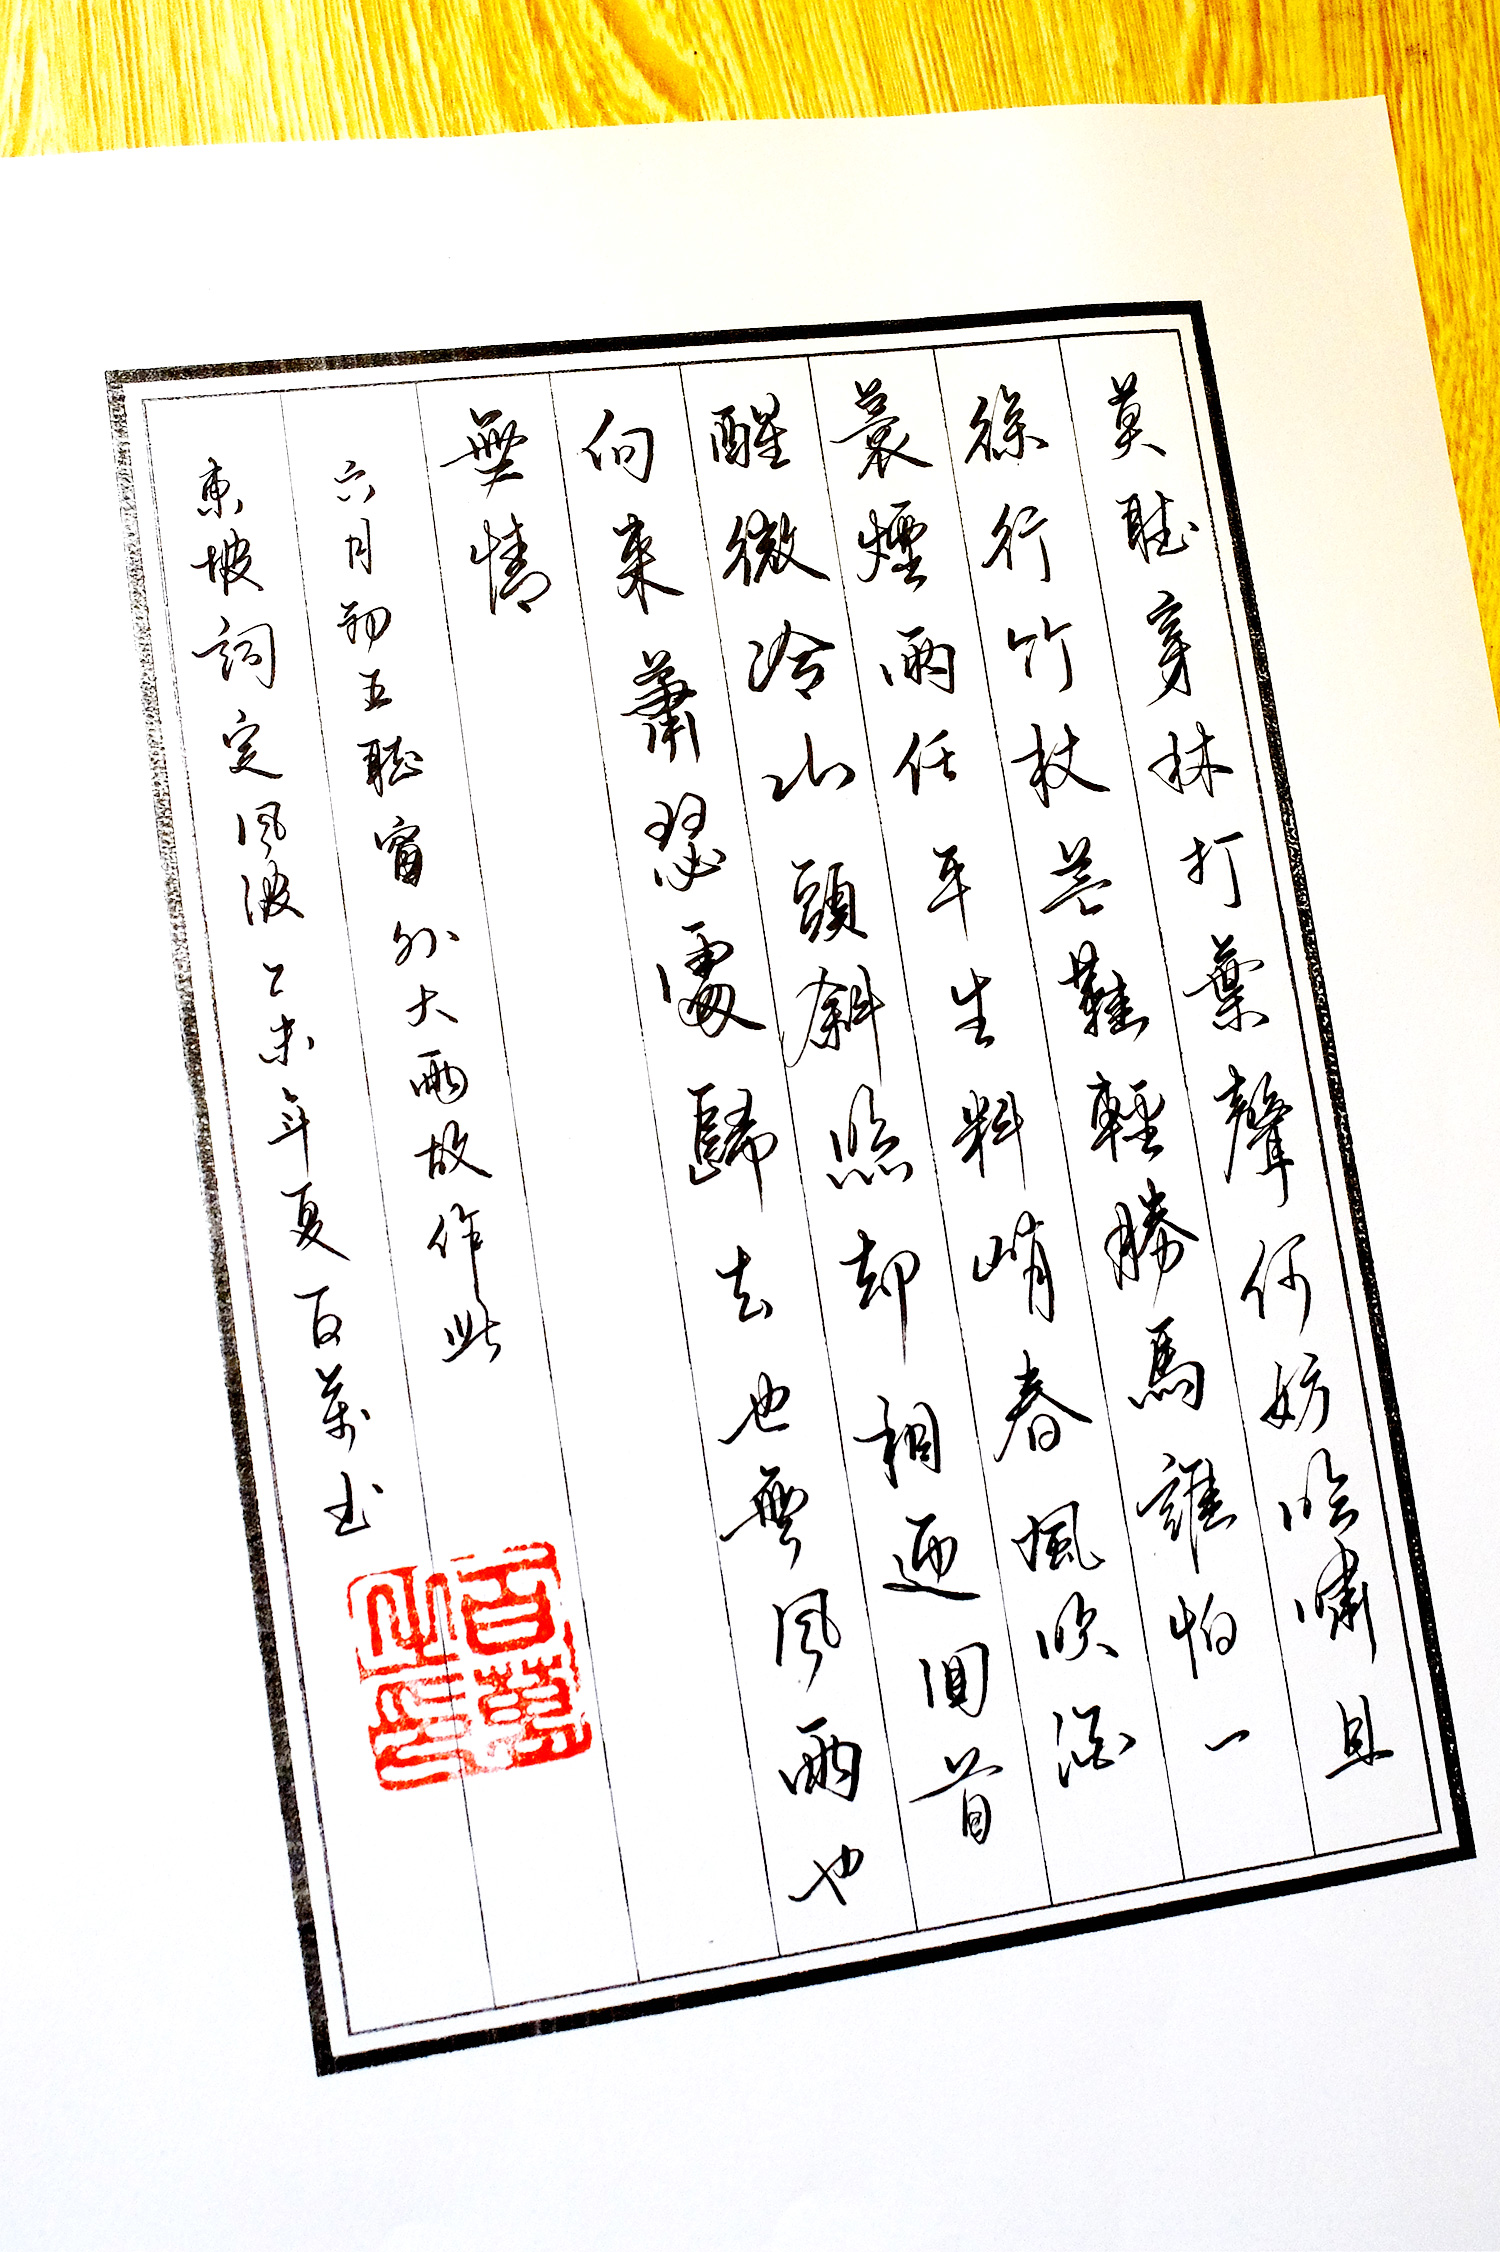 莫聽穿林打葉聲何妨吟嘯且
徐行竹杖芒鞋輕勝馬誰怕一
蓑煙雨任平生料峭春風吹酒
醒微冷山頭斜照却相迎回首
向來蕭瑟處歸去也無風雨也
無情
六月初五聽窗外大雨故作此
東坡詞定風波乙未年夏百萬书
百萬
之印